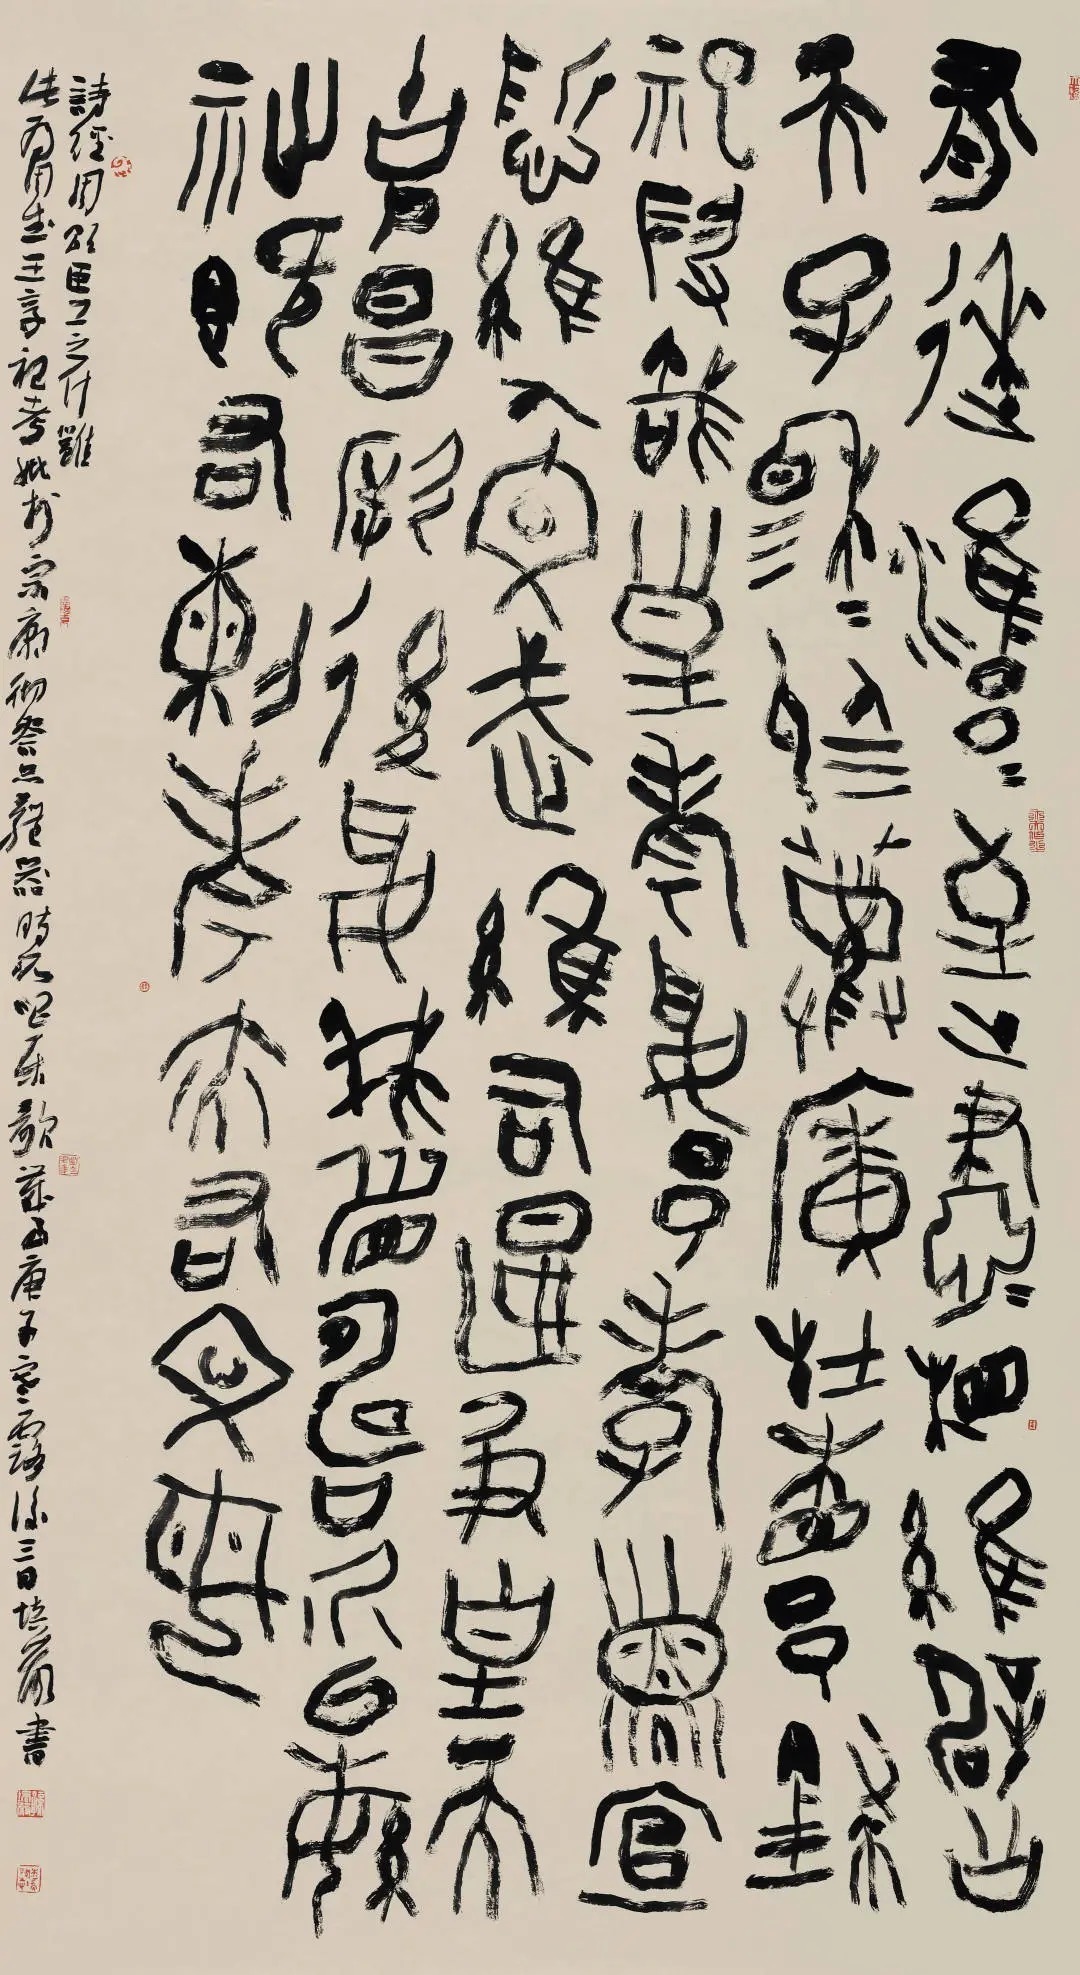 有來雝〻至止肅〻相維辟公
天子穆〻於薦廣牡相予肆
祀假哉皇考綏予孝子宣
哲維人文武維后燕及皇天
克昌厥後綏我眉壽介以繁
祉既右烈考亦右文母
詩經周頌臣工之什雝
此為周武王享祀考妣於宗廟徹祭之禮器時所唱樂歌歲在庚子寒露後三日培書